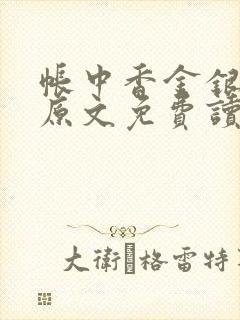 帳中香金銀
原文免費讀
大衛格雷特